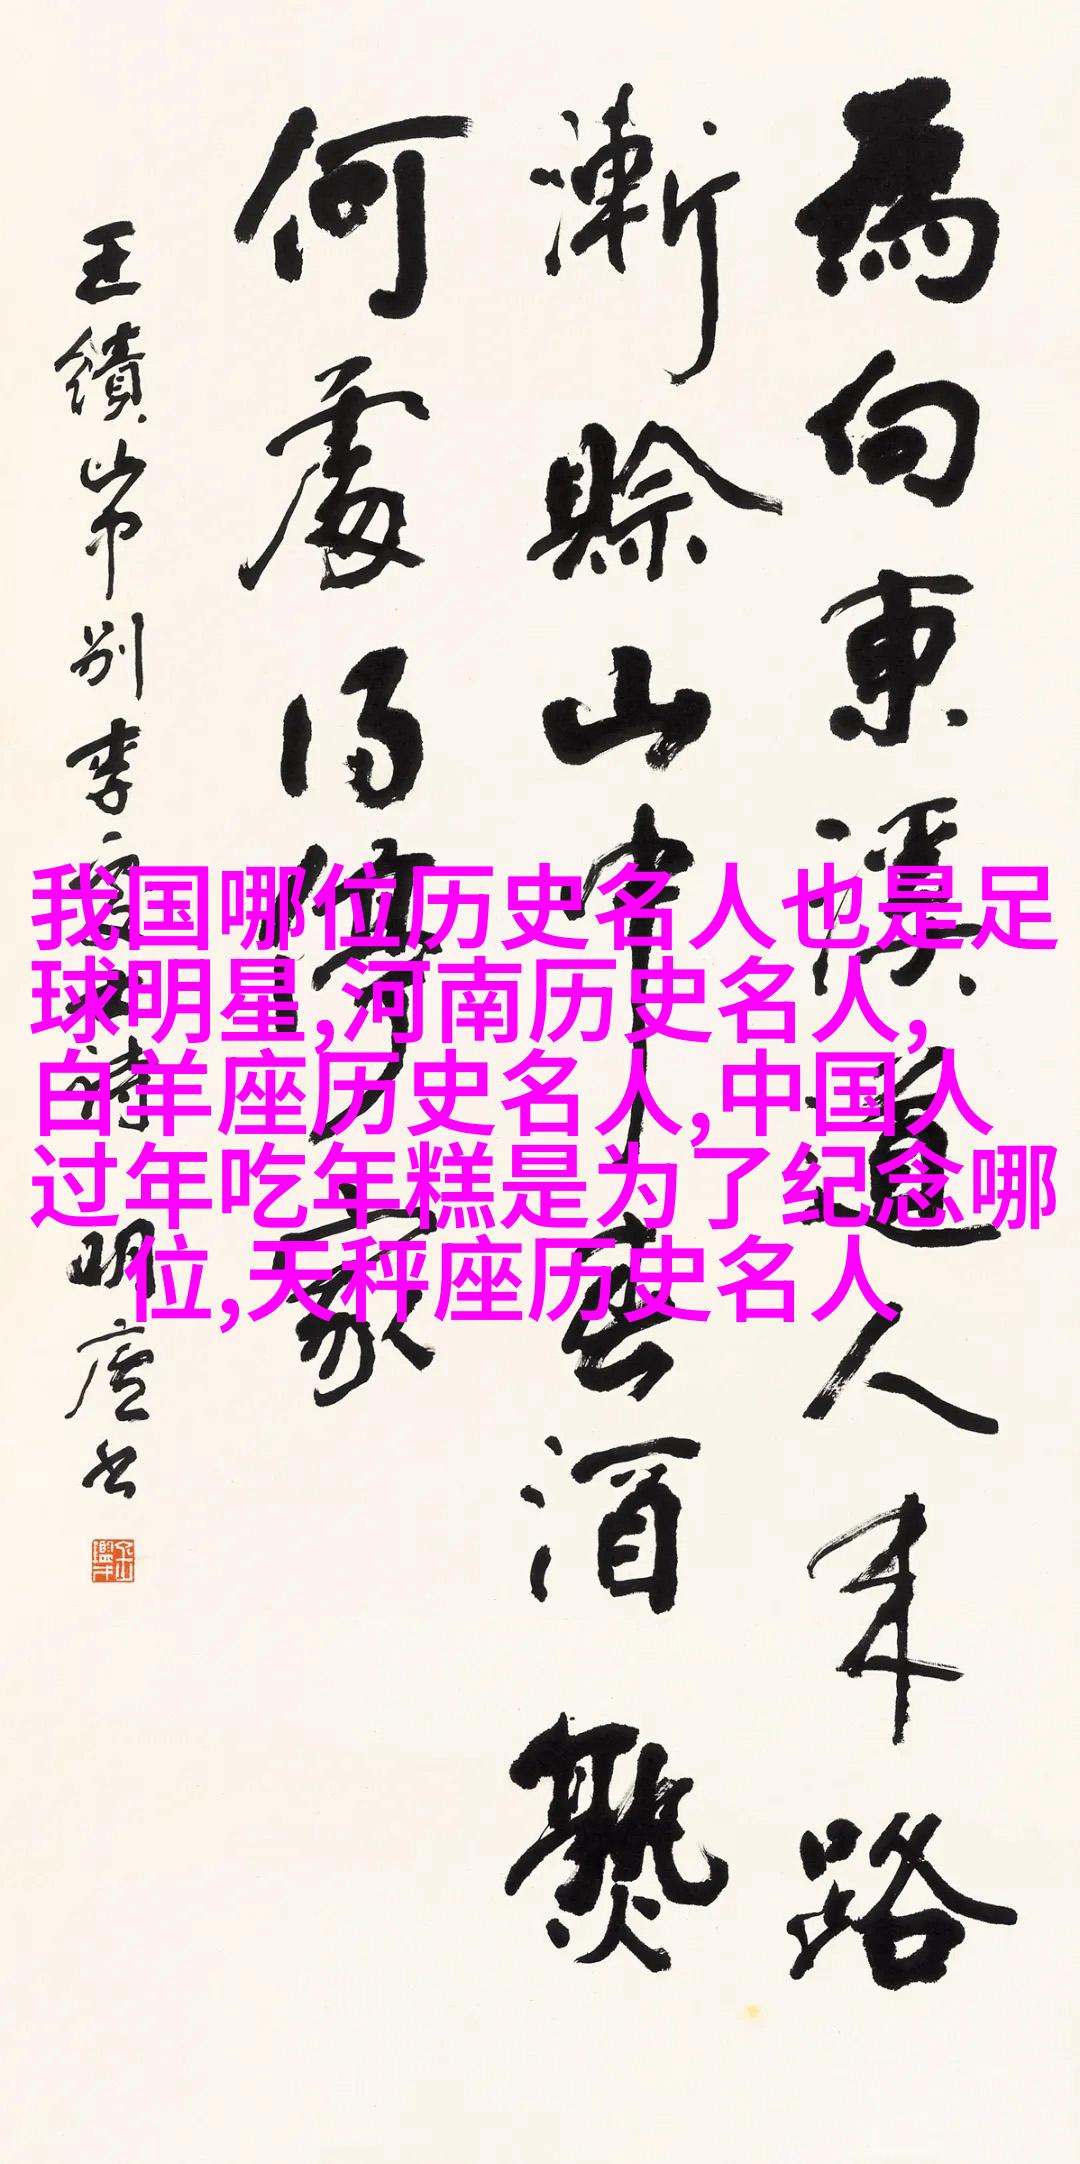 為向東溪道人来路
漸賒山中春酒熟
何處得停家
王績山中别李處士詩明廬書
我国哪位历史名人也是足
球明星,河南历史名人,
白羊座历史名人,中国人
过年吃年糕是为了纪念哪
位,天秤座历史名人